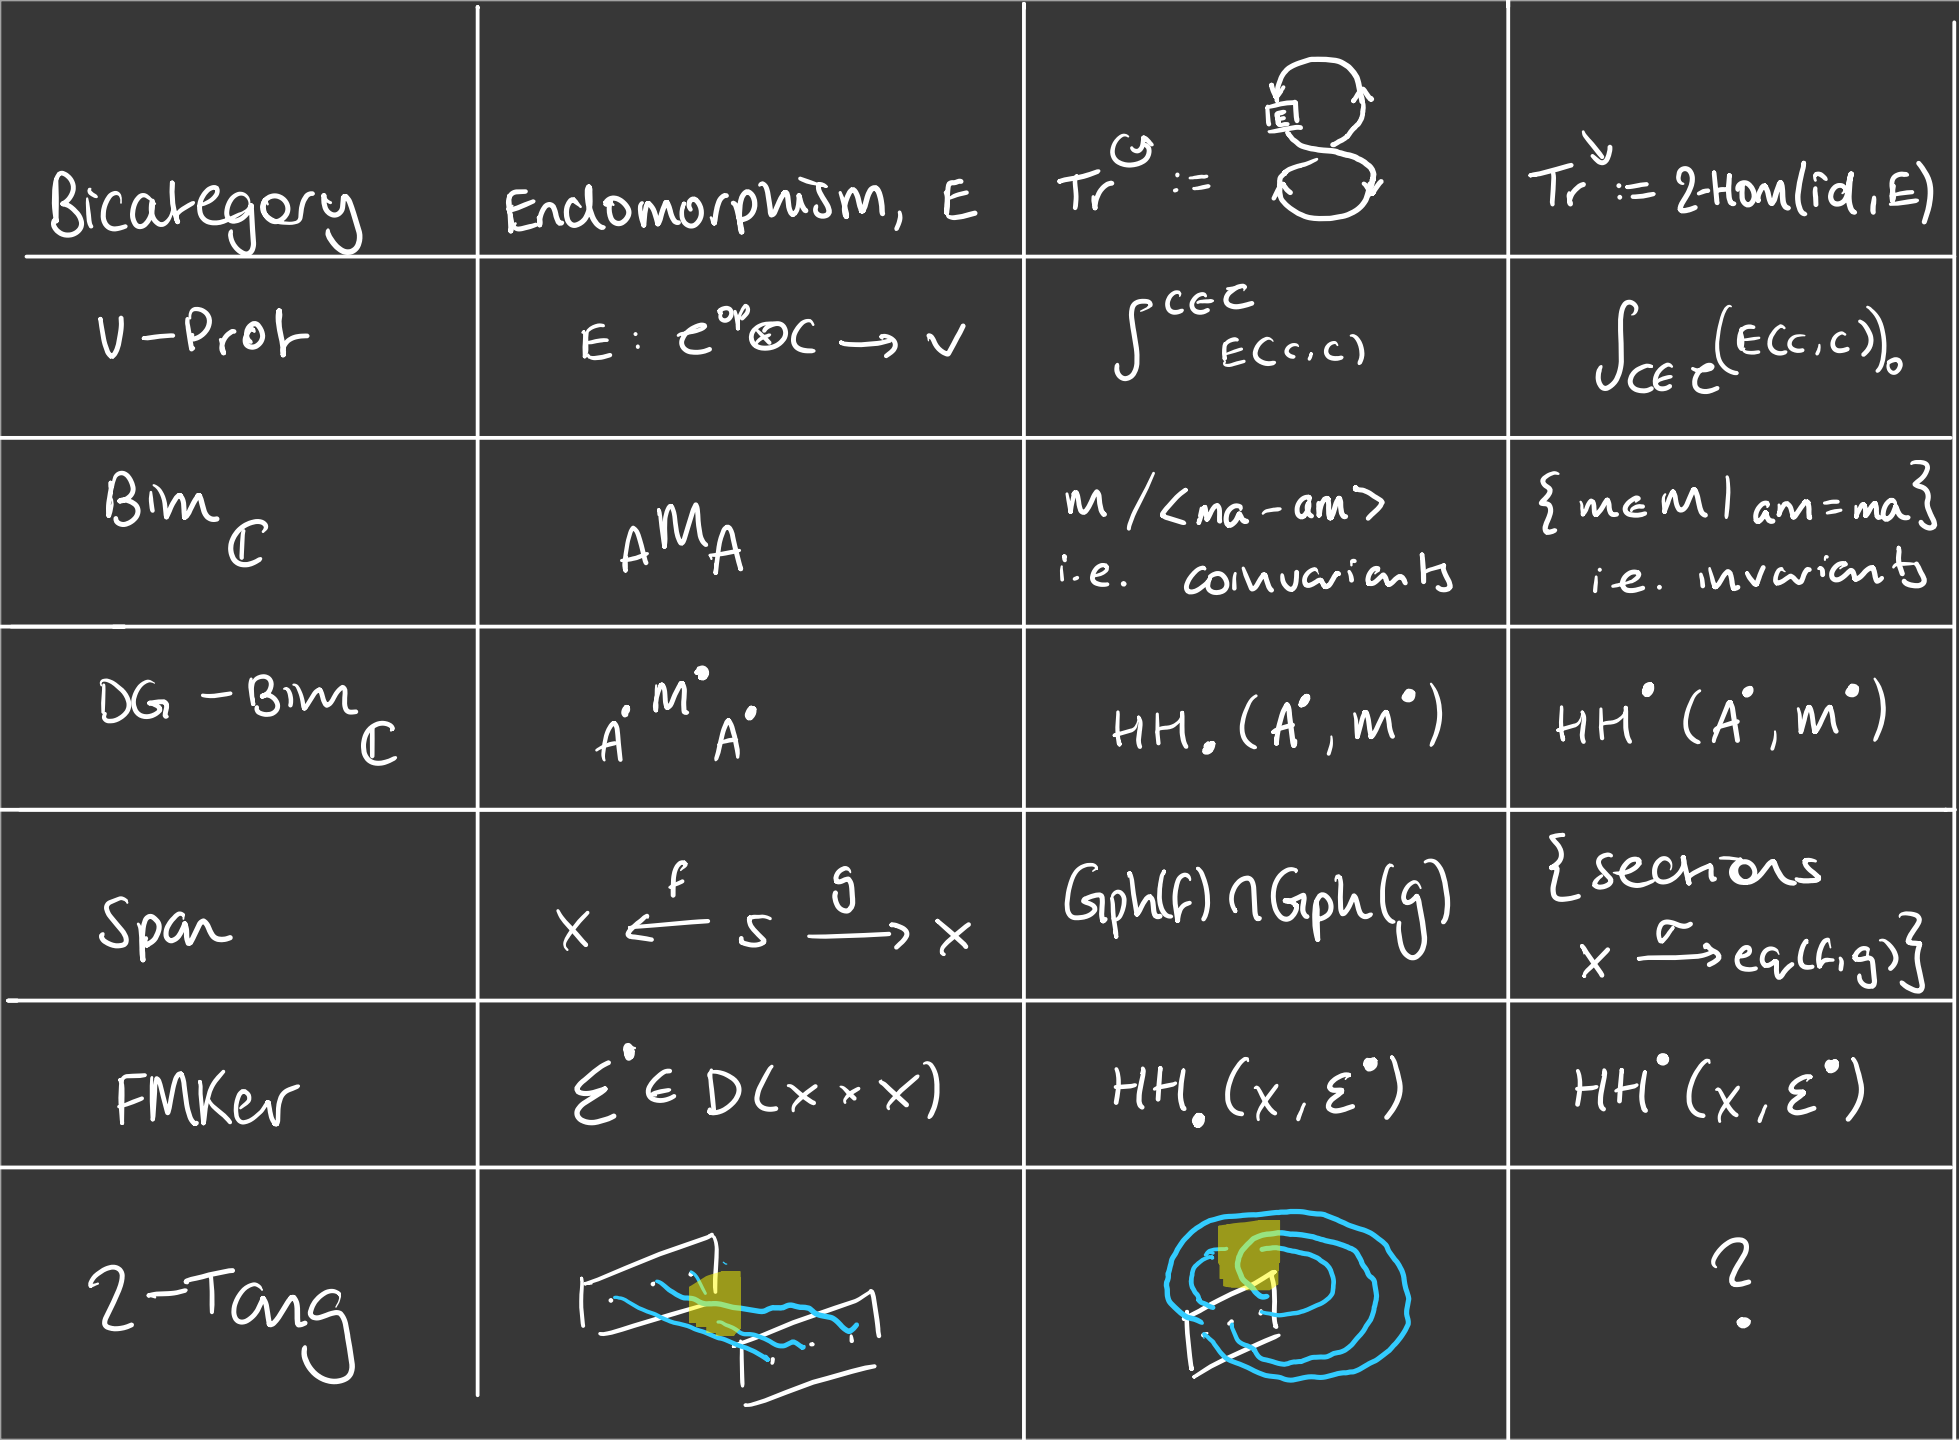 Bicategory
Endomorphism, E
Tr↺ :=
E
Tr↘ := 2-Hom(id, E)
V-Prof
E : C^op ⊗ C → V
∫^{C∈C} E(c,c)
∫_{C∈C} (E(c,c))_0
Bim_ℂ
_A M _A
M / <ma - am>
i.e. coinvariants
{ m∈M | am = ma }
i.e. invariants
DG-Bim_ℂ
_A• M• _A•
HH•(A•, M•)
HH•(A•, M•)
Span
X ←f S →g X
Gph(f) ∩ Gph(g)
{ sections
X →σ eq(f,g) }
FMKer
Ɛ• ∈ D(X × X)
HH•(X, Ɛ•)
HH•(X, Ɛ•)
2-Tang
?